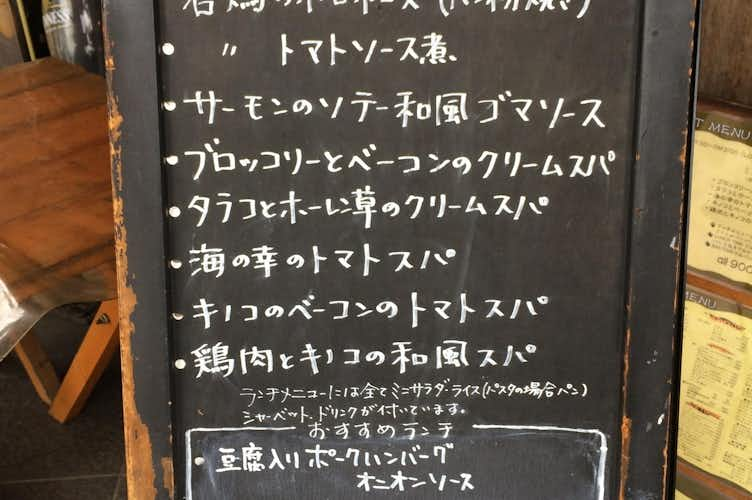 若鶏のボロネーズ(パン粉焼き)
• 〃 トマトソース煮
• サーモンのソテー和風ゴマソース
• ブロッコリーとベーコンのクリームスパ
• タラコとホーレン草のクリームスパ
• 海の幸のトマトスパ
• キノコのベーコンのトマトスパ
• 鶏肉とキノコの和風スパ
ランチメニューには全てミニサラダ・ライス(パスタの場合パン)
シャーベット、ドリンクが付いています。
おすすめランチ
• 豆腐入りポークハンバーグ
オニオンソース
MENU
all 900
MENU